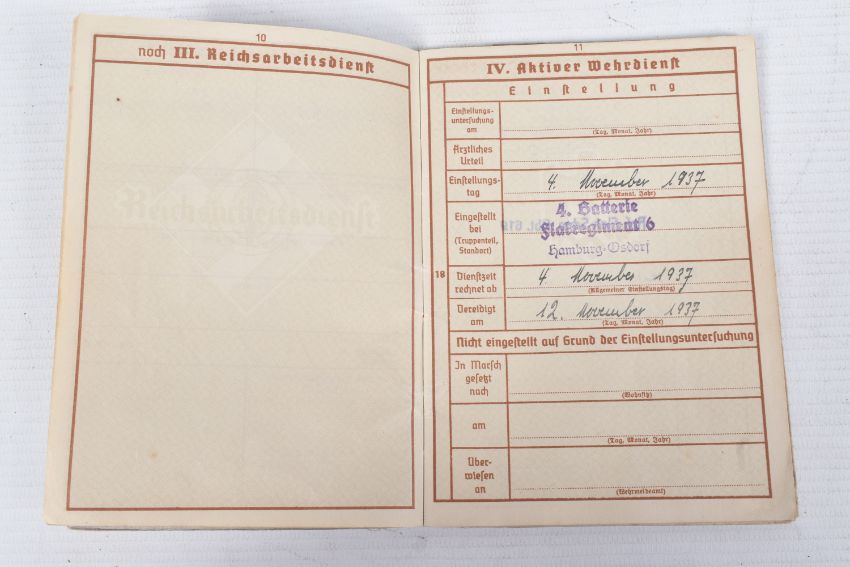 10
noch III. Reichsarbeitsdienst
11
IV. Aktiver Wehrdienst
Einstellung
Einstellungs-
untersuchung
am
(Tag, Monat, Jahr)
Ärztliches
Urteil
Einstellungs-
tag
4. November 1937
(Tag, Monat, Jahr)
Eingestellt
bei
(Truppenteil,
Standort)
4. Batterie
Flakregiment 6
Hamburg-Osdorf
18
Dienstzeit
rechnet ab
4. November 1937
(Allgemeiner Einstellungstag)
Vereidigt
am
12. November 1937
(Tag, Monat, Jahr)
Nicht eingestellt auf Grund der Einstellungsuntersuchung
In Marsch
gesetzt
nach
(Wohnsitz)
am
(Tag, Monat, Jahr)
Über-
wiesen
an
(Wehrmeldeamt)